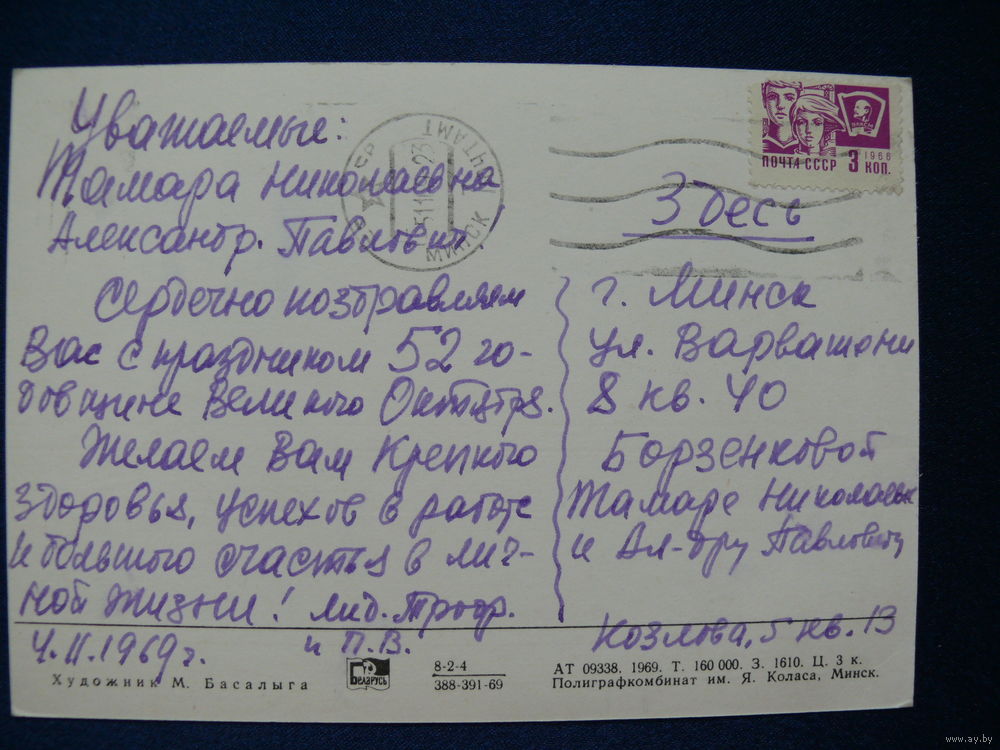 Уважаемые:
Тамара Николаевна
Александр. Павлович
Сердечно поздравляем
Вас с праздником 52 го-
довщине Великого Октября.
Желаем Вам Крепкого
здоровья, успехов в работе
и большого счастья в лич-
ной жизни!
4.II.1969г.
и П.В.
ПОЧТА СССР 3 КОП.
1966
ВЛКСМ
МИНСК
Здесь
г. Минск
ул. Варвашени
8 кв. 40
Борзенковой
Тамаре Николаевне
и Ал-дру Павловичу
Козлова, 5 кв. 13
Художник М. Басалыга
БЕЛАРУСЬ
8-2-4
388-391-69
АТ 09338. 1969. Т. 160 000. З. 1610. Ц. 3 к.
Полиграфкомбинат им. Я. Коласа, Минск.
www.ay.by